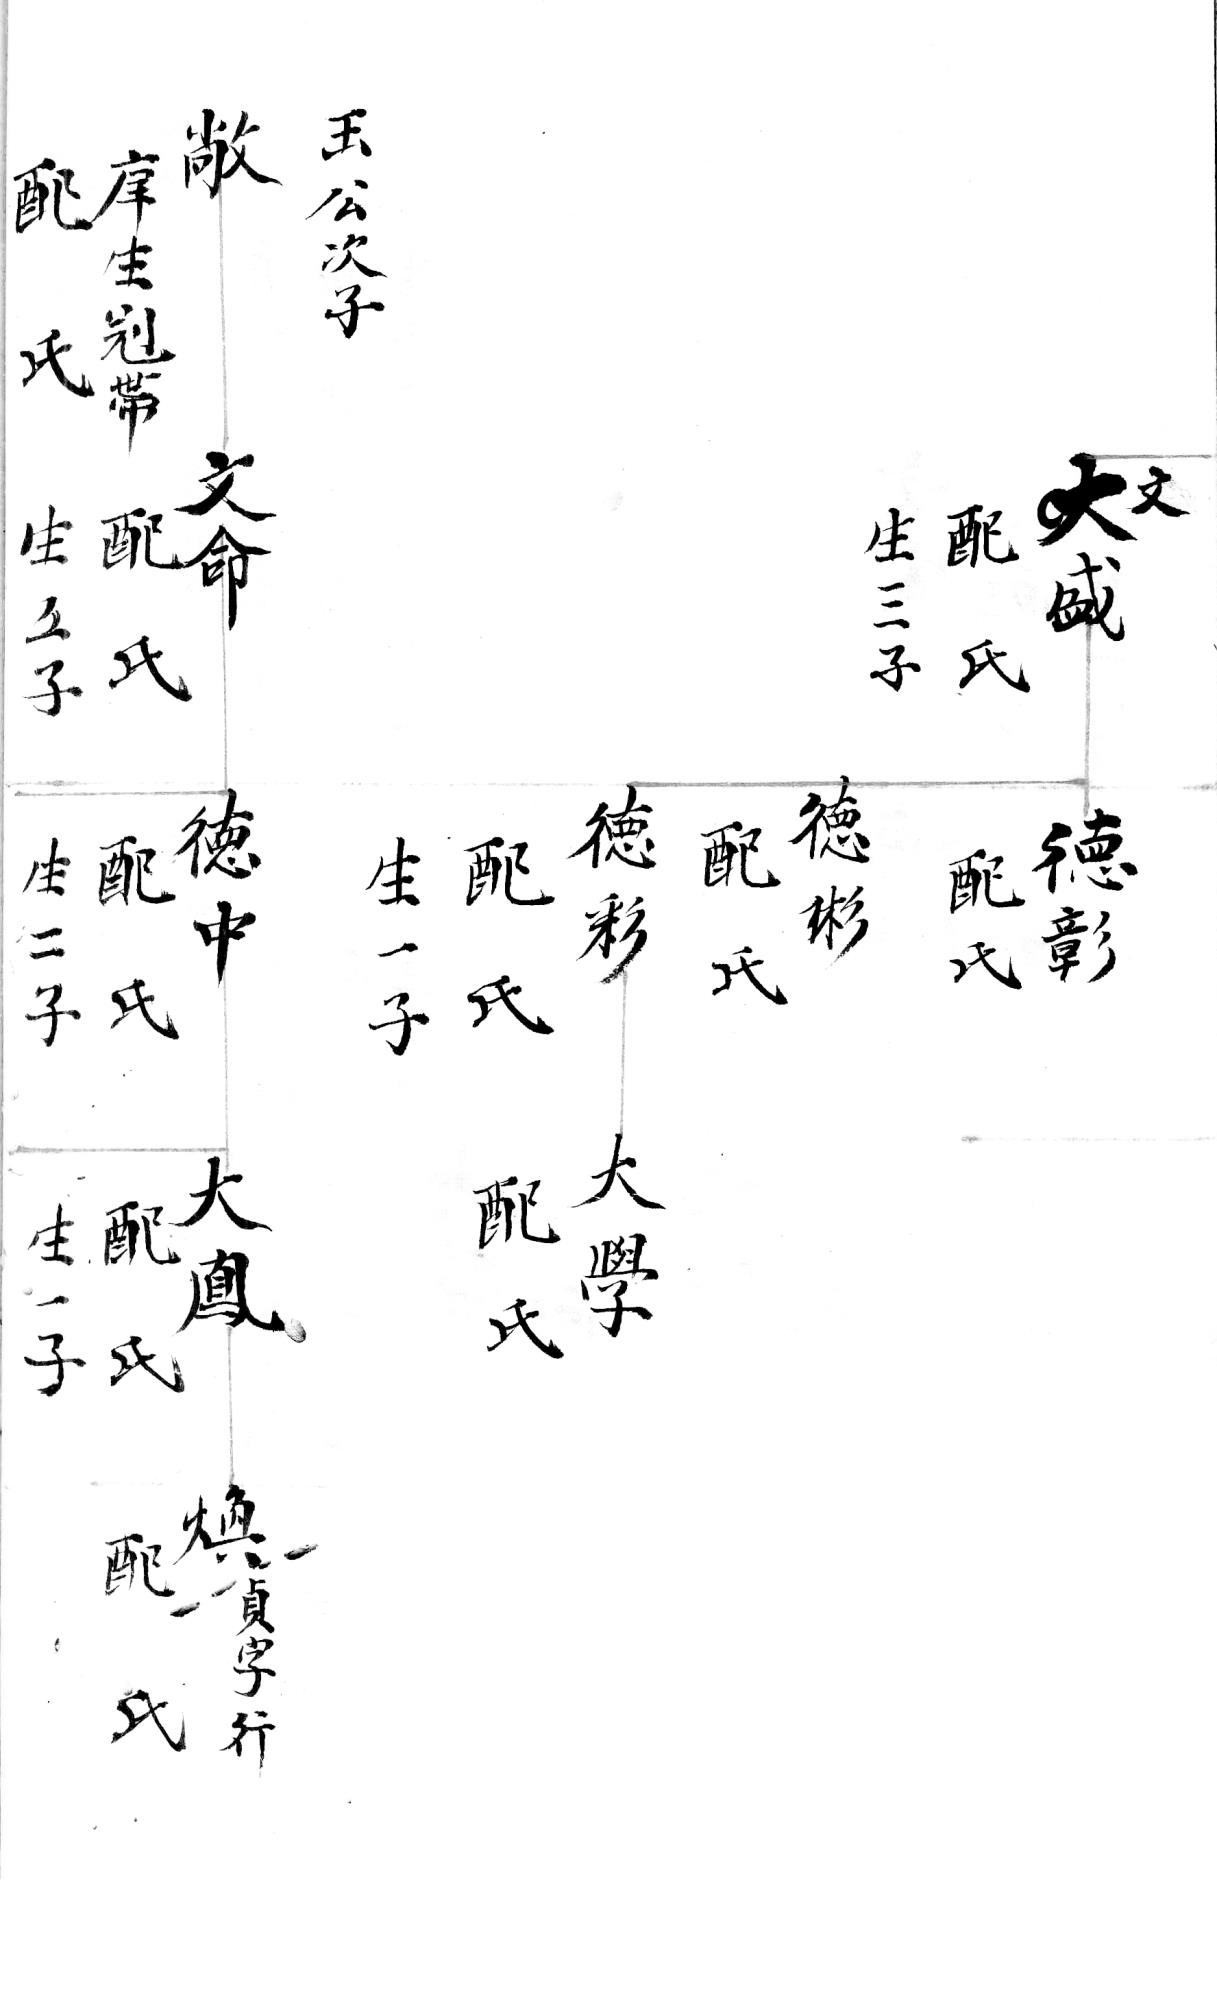 文
大盛
配 氏
生三子
德彰
配 氏
德彬
配 氏
德彩
配 氏
生一子
大學
配 氏
玉公次子
敞
庠生冠帶
配 氏
文命
配 氏
生五子
德中
配 氏
生二子
大鳳
配 氏
生一子
煥
貞字行
配 氏